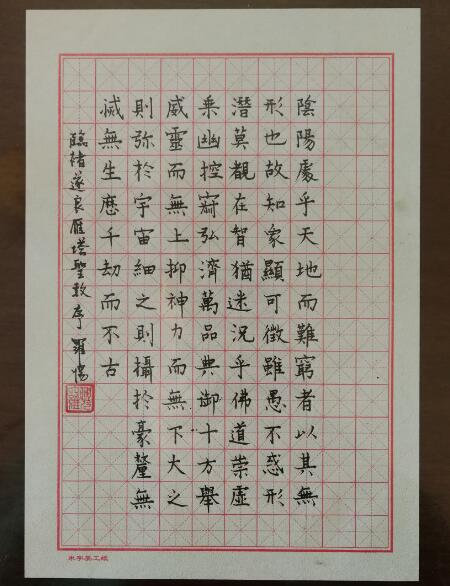 陰陽處乎天地而難窮者以其無
形也故知象顯可徵雖愚不惑形
潛莫覩在智猶迷況乎佛道崇虛
乘幽控寂弘濟萬品典御十方舉
威靈而無上抑神力而無下大之
則弥於宇宙細之則攝於豪釐無
滅無生歷千劫而不古
臨褚遂良雁塔聖教序 羅
米字美工紙